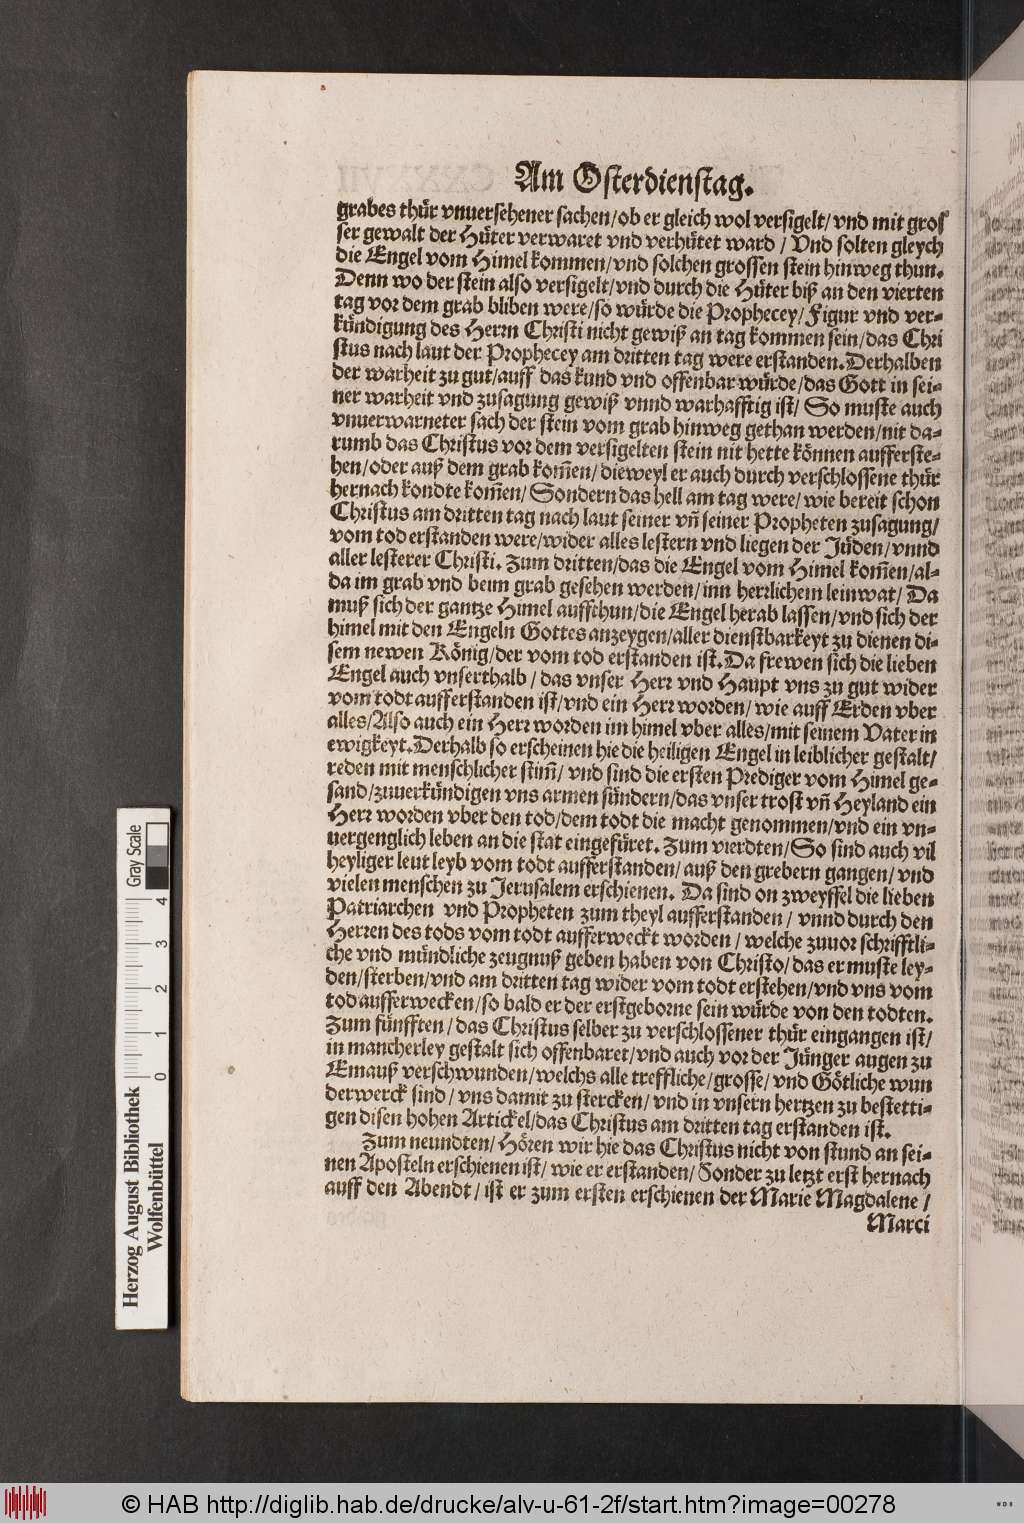 Am Osterdienstag.
grabes thür vnuersehener sachen/ob er gleich wol versigelt/vnd mit gros
ser gewalt der Hüter verwaret vnd verhütet ward / Vnd solten gleych
die Engel vom Himel kommen/vnd solchen grossen stein hinweg thun.
Denn wo der stein also versigelt/vnd durch die Hüter biß an den vierten
tag vor dem grab bliben were/so würde die Prophecey/Figur vnd ver-
kündigung des Herrn Christi nicht gewiß an tag kommen sein/das Chri
stus nach laut der Prophecey am dritten tag were erstanden.Derhalben
der warheit zu gut/auff das kund vnd offenbar würde/das Gott in sei-
ner warheit vnd zusagung gewiß vnnd warhafftig ist/ So muste auch
vnuerwarneter sach der stein vom grab hinweg gethan werden/nit da-
rumb das Christus vor dem versigelten stein nit hette können aufferste-
hen/oder auß dem grab kom̃en/dieweyl er auch durch verschlossene thür
hernach kondte kom̃en/Sondern das hell am tag were/wie bereit schon
Christus am dritten tag nach laut seiner vñ seiner Propheten zusagung/
vom tod erstanden were/wider alles lestern vnd liegen der Jüden/vnnd
aller lesterer Christi. Zum dritten/das die Engel vom Himel kom̃en/al-
da im grab vnd beim grab gesehen werden/inn herrlichem leinwat/ Da
muß sich der gantze Himel auffthun/die Engel herab lassen/vnd sich der
himel mit den Engeln Gottes anzeygen/aller dienstbarkeyt zu dienen di-
sem newen König/der vom tod erstanden ist.Da frewen sich die lieben
Engel auch vnserthalb / das vnser Herr vnd Haupt vns zu gut wider
vom todt aufferstanden ist/vnd ein Herr worden/ wie auff Erden vber
alles/Also auch ein Herr worden im himel vber alles/mit seinem Vater in
ewigkeyt.Derhalb so erscheinen hie die heiligen Engel in leiblicher gestalt/
reden mit menschlicher stim̃/ vnd sind die ersten Prediger vom Himel ge-
sand/zuuerkündigen vns armen sündern/das vnser trost vñ Heyland ein
Herr worden vber den tod/dem todt die macht genommen/vnd ein vn-
uergenglich leben an die stat eingefüret. Zum vierdten/So sind auch vil
heyliger leut leyb vom todt aufferstanden/ auß den grebern gangen/ vnd
vielen menschen zu Jerusalem erschienen. Da sind on zweyffel die lieben
Patriarchen vnd Propheten zum theyl aufferstanden / vnnd durch den
Herren des tods vom todt aufferweckt worden / welche zuuor schrifftli-
che vnd mündliche zeugnuß geben haben von Christo/das er muste ley-
den/sterben/vnd am dritten tag wider vom todt erstehen/vnd vns vom
tod aufferwecken/so bald er der erstgeborne sein würde von den todten.
Zum fünfften/das Christus selber zu verschlossener thür eingangen ist/
in mancherley gestalt sich offenbaret/vnd auch vor der Jünger augen zu
Emauß verschwunden/welchs alle treffliche/grosse/ vnd Götliche wun
derwerck sind / vns damit zu stercken/ vnd in vnsern hertzen zu bestetti-
gen disen hohen Artickel/das Christus am dritten tag erstanden ist.
Zum neundten/ Hören wir hie das Christus nicht von stund an sei-
nen Aposteln erschienen ist/ wie er erstanden/Sonder zu letzt erst hernach
auff den Abendt / ist er zum ersten erschienen der Marie Magdalene /
Marci
Herzog August Bibliothek
Wolfenbüttel
Gray Scale
0 1 2 3 4
© HAB http://diglib.hab.de/drucke/alv-u-61-2f/start.htm?image=00278